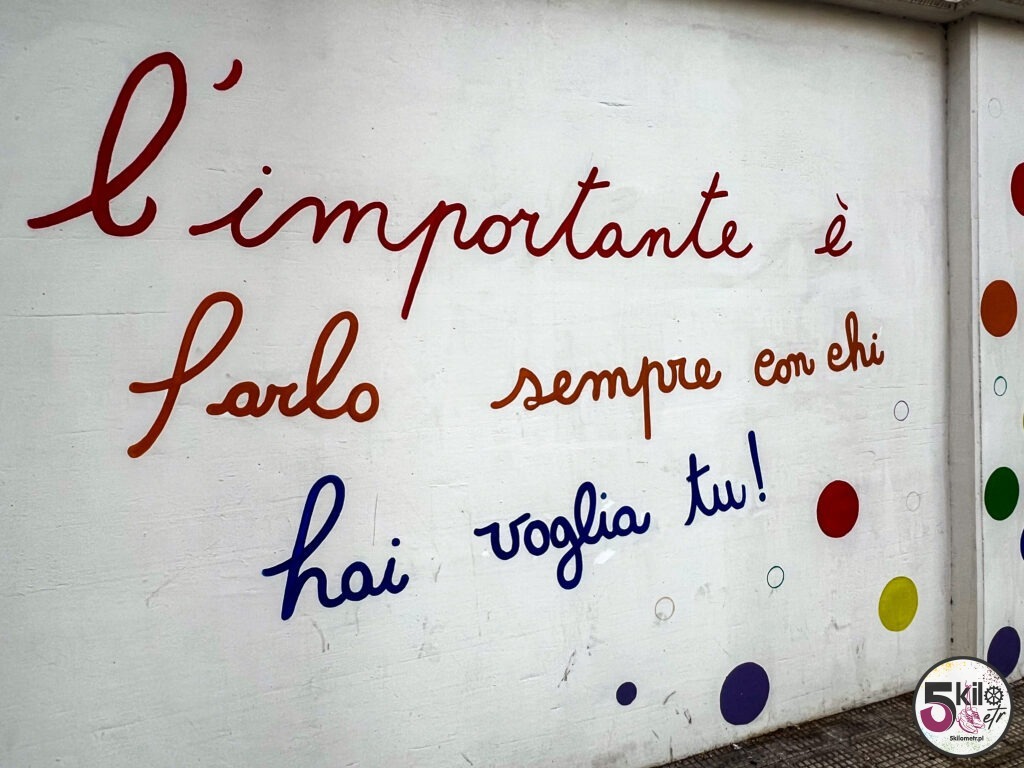 l'importante è
farlo sempre con chi
hai voglia tu!
5kilometr
5kilometr.pl